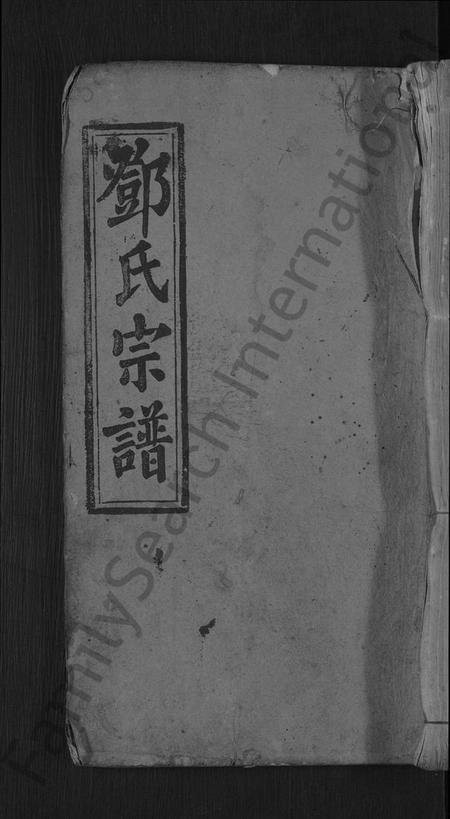 鄧氏宗譜
FamilySearch International